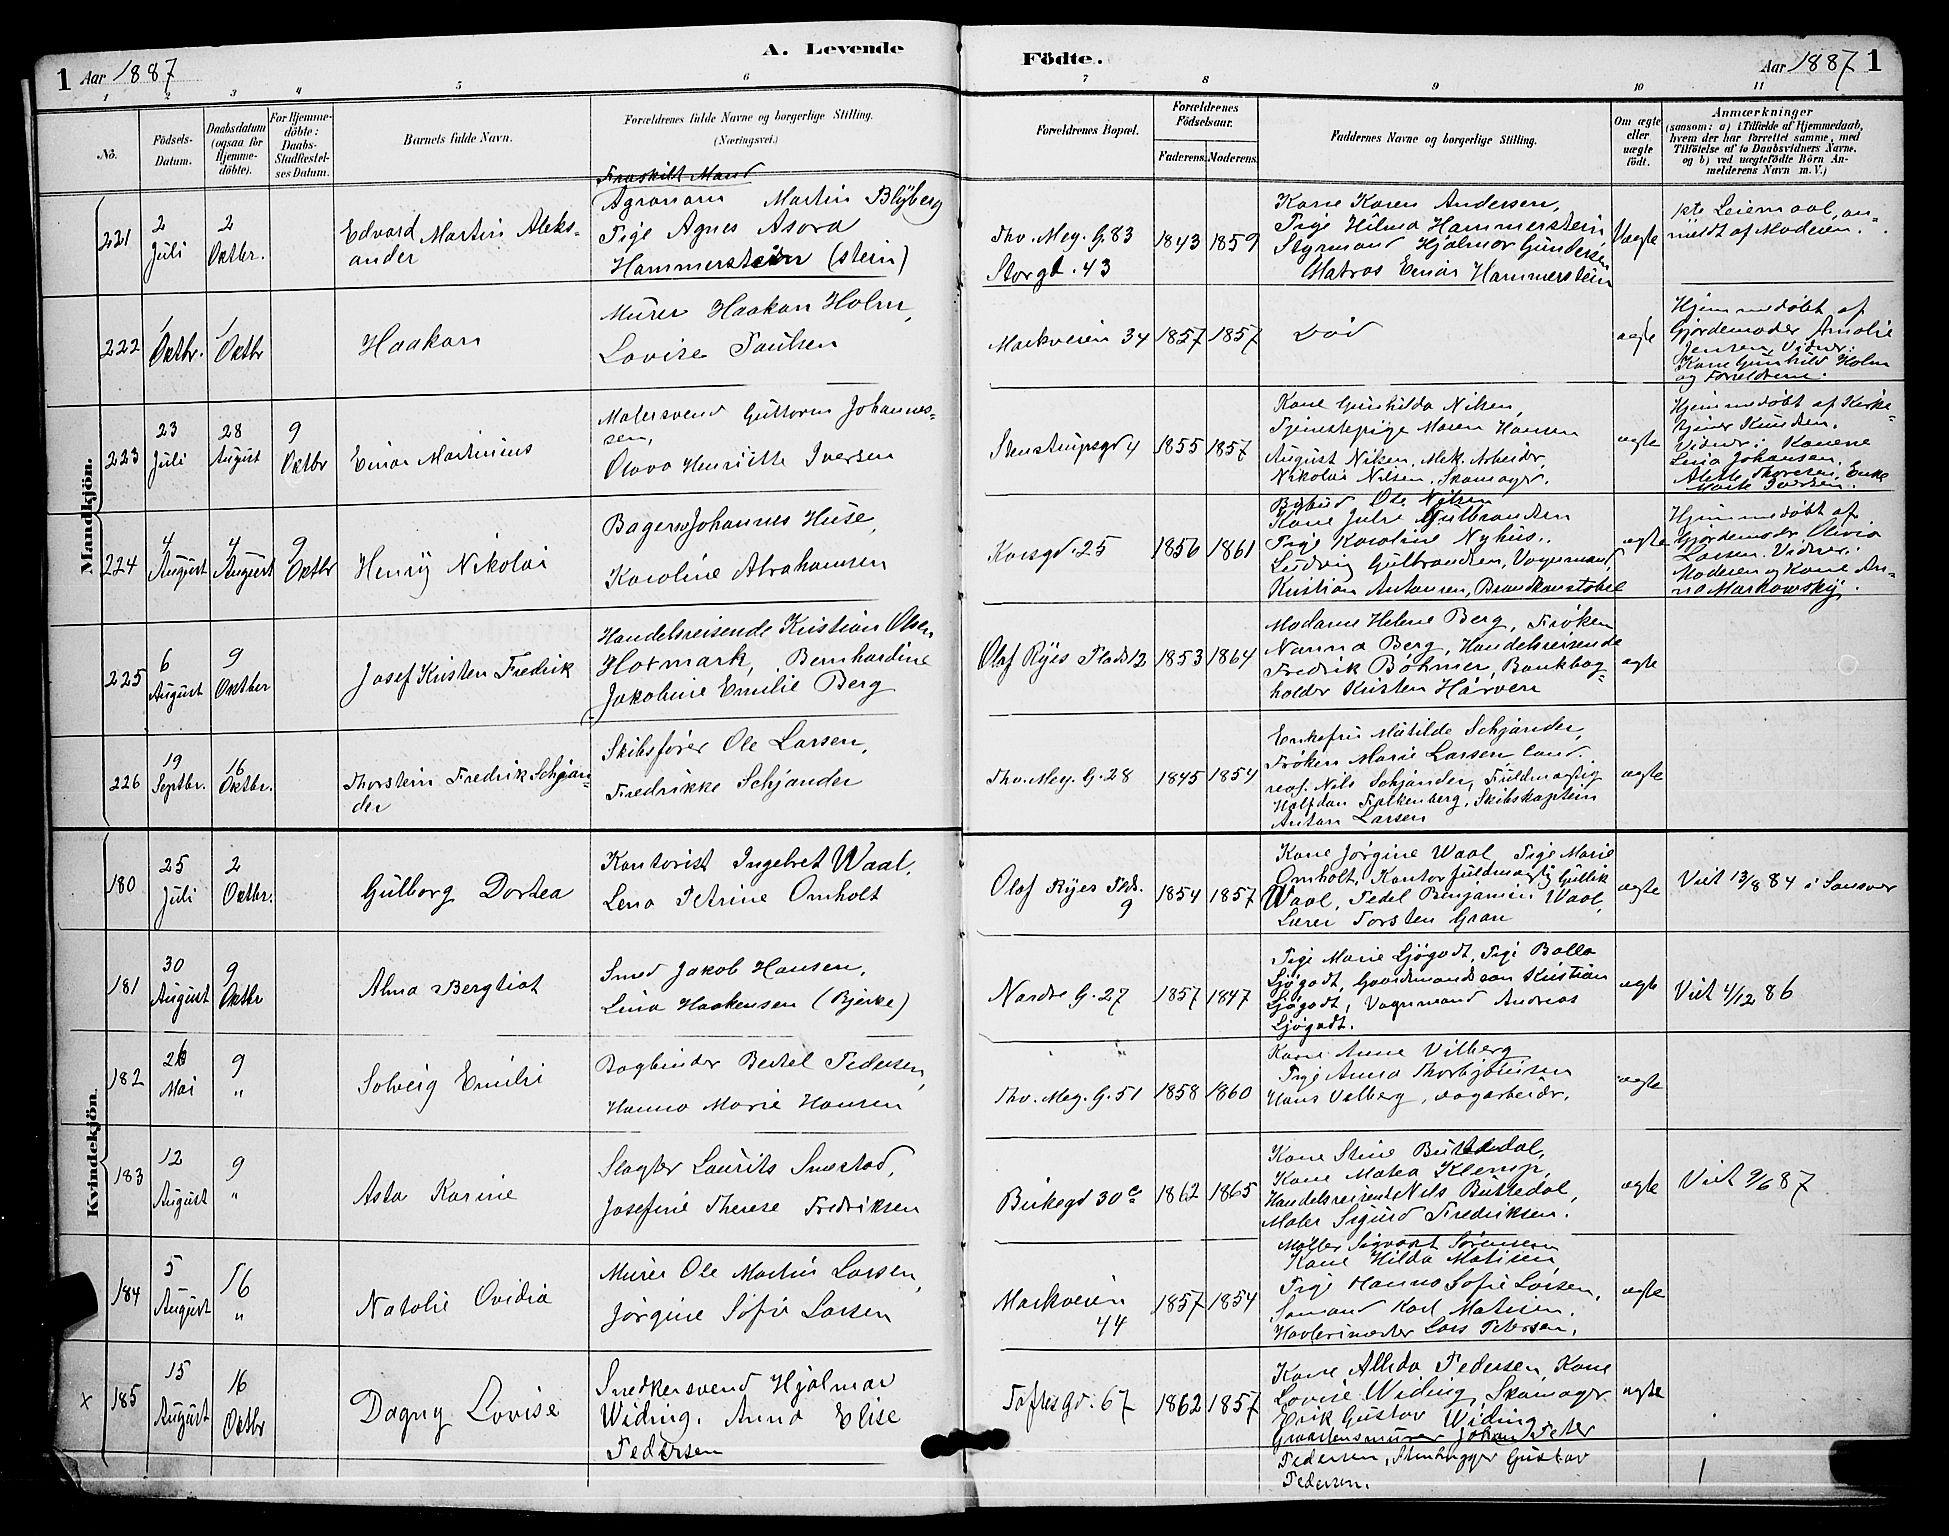 A. Levende Födte.
1 Aar 1887
Aar 1887 1
1 2 3 4 5 6 7 8 9 10 11
No.
Födsels-
Datum.
Daabsdatum
(ogsaa for
Hjemme-
döbte).
For Hjemme-
döbte:
Daabs-
Stadfæstel-
ses Datum.
Barnets fulde Navn.
Forældrenes fulde Navne og borgerlige Stilling.
(Næringsvei.)
Forældrenes Bopæl.
Forældrenes
Födselsaar.
Faderens. Moderens.
Faddernes Navne og borgerlige Stilling.
Om ægte
eller
uægte
födt.
Anmærkninger
(saasom: a) i Tilfælde af Hjemmedaab,
hvem der har forrettet samme, med
Tilföielse af to Daabsvidners Navne,
og b) ved uægtefödte Börn An-
melderens Navn m. V.)
Mandkjön.
221
2
Juli
2
Oktbr.
Edvard Martin Aleks-
ander
Fraskilt Mand
Agronom Martin Blyberg
Pige Agnes Asora
Hammerstein (stein)
Thv. Mey. G. 83
Storgt. 43
1843 1859
Kone Karen Andersen,
Pige Hilma Hammerstein,
Styrmand Hjalmar Gundersen
Matros Einar Hammerstein
Uægte
1ste Leiermaal, an-
meldt af Moderen.
222
1
Oktbr.
1
Oktbr
Haakon
Murer Haakon Holm,
Lovise Paulsen
Markveien 34
1857 1857
Död
ægte
Hjemmedöbt af
Gjordemoder Amalie
Jensen, Vidner:
Kone Gunhild Holm
og Forældrene.
223
23
Juli
28
August
9
Oktbr
Einar Martinius
Malersvend Guttorm Johannes-
sen,
Olava Henriette Iversen
Stenstrupsgd 4
1855 1857
Kone Gunhilda Nilsen,
Tjenestepige Maren Hansen
August Nilsen, Mek. Arbeider,
Nikolai Nilsen, Skomager.
ægte
Hjemmedöbt af Kirke-
tjener Knudsen.
Vidner: Konerne
Lina Johansen,
Alette Thoresen, Enke
Marte Iversen.
224
4
August
4
August
9
Oktbr
Henry Nikolai
Bagersv Johannes Huse,
Karoline Abrahamsen
Korsgd. 25
1856 1861
Bybud Ole Nilsen
Kone Julie Gulbrandsen
Pige Karoline Nyhus.
Ludvig Gulbrandsen, Vognmand,
Kristian Antonsen, Brandkonstabel
ægte
Hjemmedöbt af
Gjordemoder Olivia
Larsen. Vidner:
Moderen og Kone An-
na Markowsky.
225
6
August
9
Oktber
Josef Kristen Fredrik
Handelsreisende Kristian Olsen
Hotmark, Bernhardine
Jakobine Emilie Berg
Olaf Ryes Plads 2
1853 1864
Madame Helene Berg, Fröken
Nanna Berg, Handelsreisende
Fredrik Böhmer, Bankbog-
holder Kristen Harven
ægte
226
19
Septbr.
16
Oktbr.
Thorstein Fredrik Schjan-
der
Skibsförer Ole Larsen,
Fredrikke Schjander
Thv. Mey. G. 28
1845 1854
Enkefru Matilde Schjander,
Fröken Marie Larsen, Cand.
real. Nils Schjander, Fuldmægtig
Halfdan Falkenberg, Skibskaptein
Anton Larsen
ægte
Kvindekjön.
180
25
Juli
2
Oktbr.
Gulborg Dortea
Kontorist Ingebret Waal,
Lena Petrine Omholt
Olaf Ryes Plds.
9
1854 1857
Kone Jörgine Waal, Pige Marie
Omholt, Kontorfuldmægtig Gullik
Waal, Pedel Benjamin Waal,
Lærer Torsten Gran
ægte
Viet 13/8 84 i Sansver
181
30
August
9
Oktbr
Alma Bergliot
Smed Jakob Hansen,
Lina Haakensen (Bjerke)
Nordre G. 27
1857 1847
Pige Marie Ljögodt, Pige Bolla
Ljögodt, Gaardmandssön Kristian
Ljögodt, Vognmand Andreas
Ljögodt.
ægte
Viet 4/12 86
182
26
Mai
9
"
Solveig Emilie
Bogbinder Bertel Pedersen,
Hanna Marie Hansen
Thv. Mey. G. 51
1858 1860
Kone Anne Vilberg
Pige Anna Thorbjörnsen
Hans Vilberg, Dagarbeidr.
ægte
183
12
August
9
"
Asta Karine
Slagter Laurits Smestad,
Josefine Therese Fredriksen
Birkegd 30c
1862 1865
Kone Stine Buttedal,
Kone Matea Klemp,
Handelsreisende Nils Buttedal,
Maler Sigurd Fredriksen.
ægte
Viet 9/6 87
184
5
August
16
"
Natalie Ovidia
Murer Ole Martin Larsen,
Jörgine Sofie Larsen
Markveien
44
1857 1854
Möller Sigvart Sörensen
Kone Hilda Matisen,
Pige Hanna Sofie Larsen,
Sömand Karl Matisen,
Hovlerimester Lars Petersen.
ægte
x 185
15
August
16
Oktbr
Dagny Lovise
Snedkersvend Hjalmar
Widing, Anna Elise
Pedersen
Toftesgd. 67
1862 1857
Kone Allida Pedersen, Kone
Lovise Widing, Skomager
Erik Gustav Widing,
Graastensmurer Johan Peter
Pedersen, Stenhugger Gustav
Pedersen.
ægte